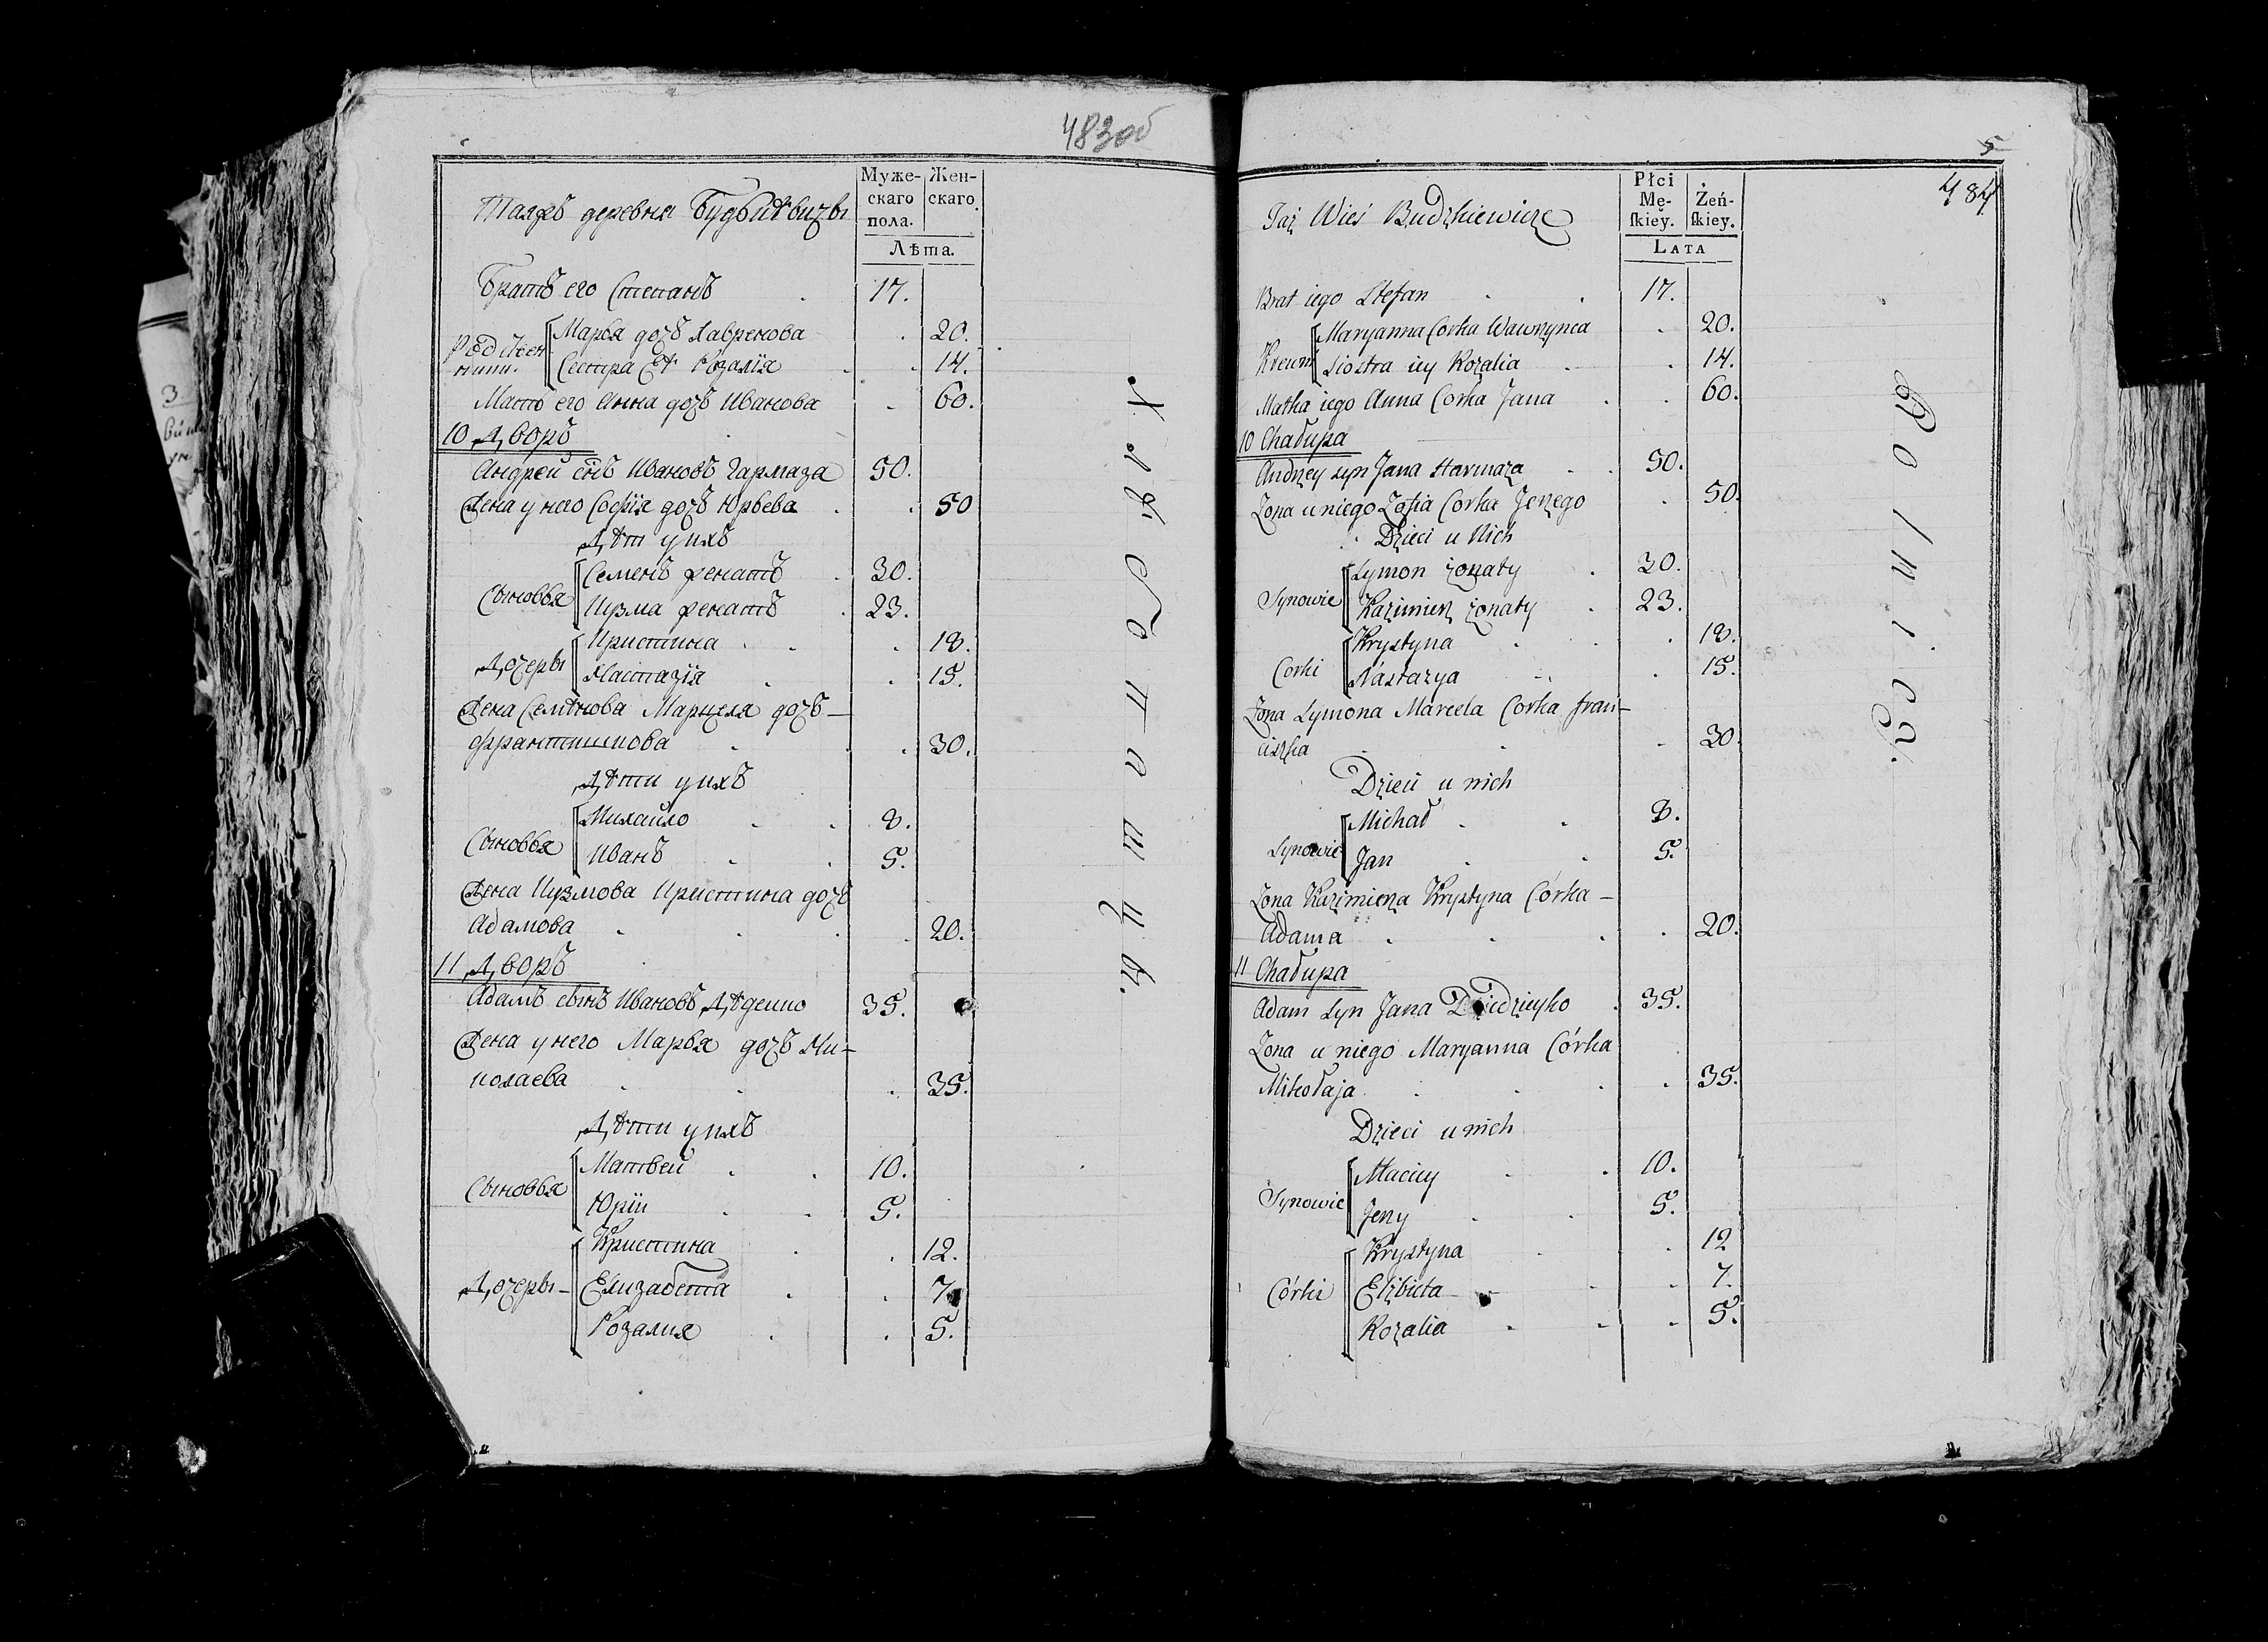 483об
Таяжъ деревня Будзкѣвичы
Муже-
скаго
пола.
Жен-
скаго.
Лѣта.
Братъ его Степанъ 17.
Марья дочъ Лавренова 20.
Сестра Еѣ Розалїя 14.
Мать его Анна дочъ Иванова 60.
10 Дворъ
Андрей сынъ Ивановъ Гармаза 50.
Жена унего Софїя дочъ Юрьева 50
Дѣти унихъ
Сыновья
Семенъ женатъ 30.
Кузма женатъ 23.
Дочеры
Кристина 18.
Настазїя 15.
Жена Семѣнова Марцеля дочъ —
Франтишкова 30.
Дѣти унихъ
Сыновья
Михайло 8.
Иванъ 5.
Жена Кузмова Кристина дочъ
Адамова 20.
11 Дворъ
Адамъ сынъ Ивановъ Дѣдейко 35.
Жена унего Марья дочъ Ни-
колаева 35.
Дѣти унихъ
Сыновья
Матвей 10.
Юрїи 5.
Дочеры —
Кристина 12.
Елизабета 7.
Розалия 5.
5
484
Taż Wieś Budzkiewicze
Płci
Mę-
ſkiey.
Żeń-
ſkiey.
LATA
Brat iego Stefan 17.
Krewni
Maryanna Corka Wawrzynca 20.
Siostra iey Rozalia 14.
Matka iego Anna Corka Jana 60.
10 Chałupa
Andrzey syn Jana Harmaza 50.
Zona u niego Zofia Corka Jerzego 50.
Dzieci u Nich
Synowie
Symon żonaty 30.
Kazimierz żonaty 23.
Corki
Krystyna 18.
Nastazya 15.
Zona Symona Marcela Corka fran-
ciszka 30
Dzieci u nich
Synowie
Michał 8.
Jan 5.
Zona Kazimierza Krystyna Córka —
Adama 20.
11 Chałupa
Adam Syn Jana Dziedzieyko 35.
Zona u niego Maryanna Córka
Mikołaja 35.
Dzieci u nich
Synowie
Maciey 10.
Jerzy 5.
Córki
Krystyna 12
Elżbieta 7.
Rozalia 5.